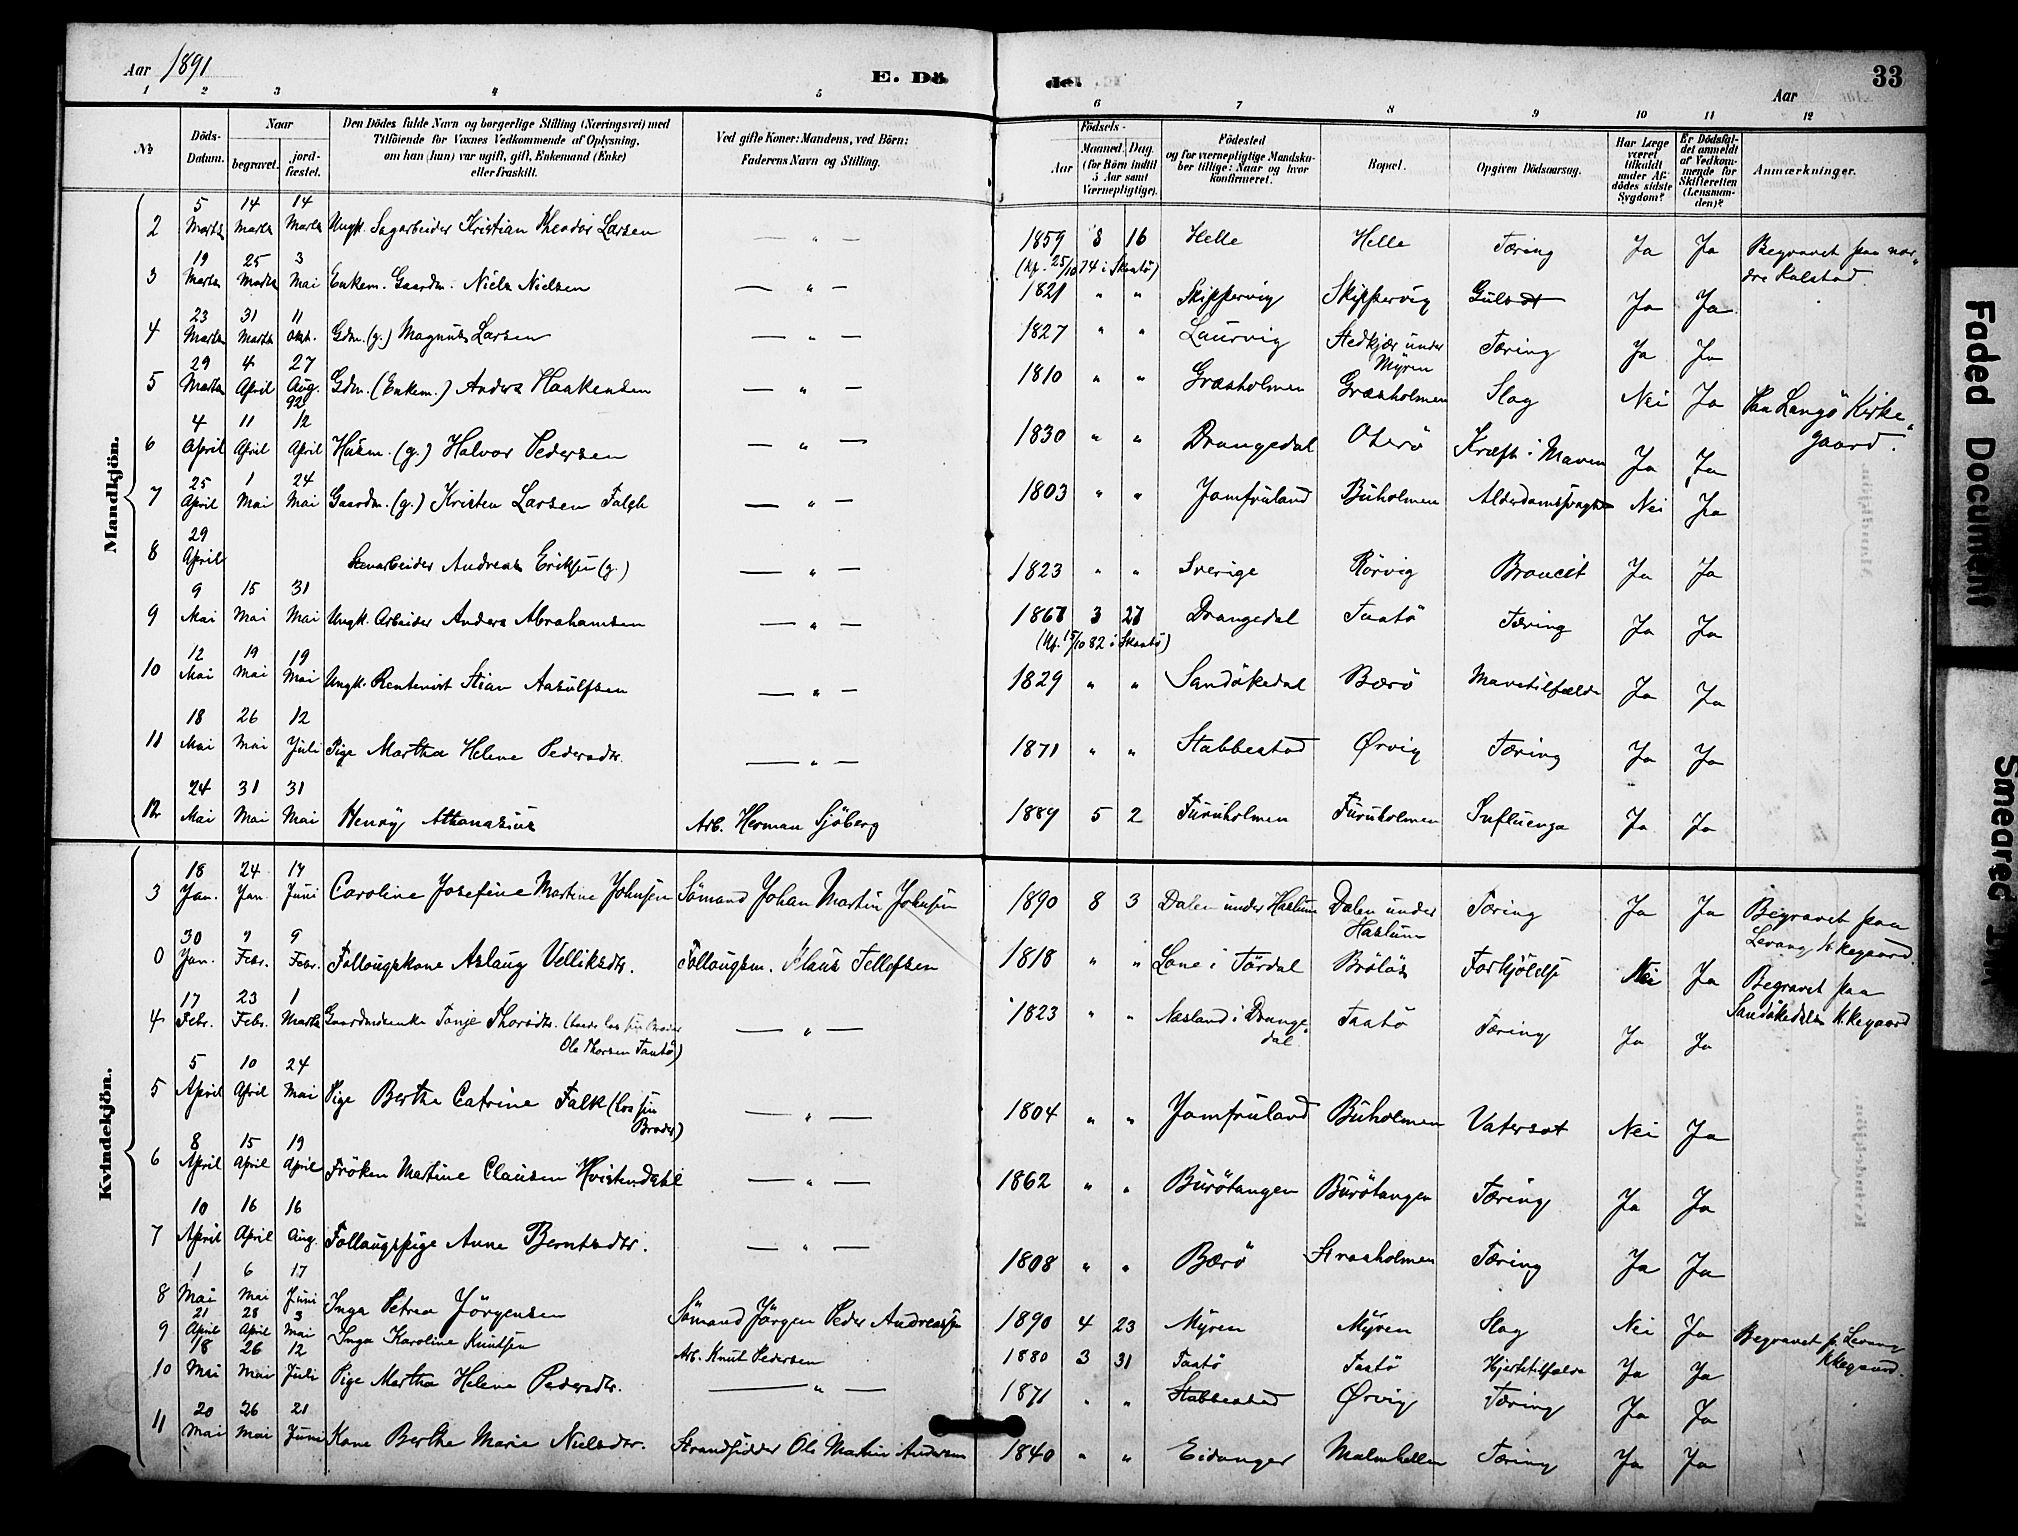 Aar 1891 E. Dö
de. Aar 33
1 2 3 4 5 6 7 8 9 10 11 12
No
Döds-Datum.
Naar begravet. jord-fæstet.
Den Dödes fulde Navn og borgerlige Stilling (Næringsvei) med Tilföiende for Voxnes Vedkommende af Oplysning, om han (hun) var ugift, gift, Enkemand (Enke) eller fraskilt.
Ved gifte Koner: Mandens, ved Börn: Faderens Navn og Stilling.
Födsels- Aar Maaned. Dag. (for Börn indtil 5 Aar samt Værnepligtige).
Födested og for værnepligtige Mandska-ber tillige: Naar og hvor konfirmeret.
Bopæl.
Opgiven Dödsaarsag.
Har Læge været tilkaldt under Af-dödes sidste Sygdom?
Er Dödsfal-det anmeldt af Vedkom-mende for Skifteretten (Lensman-den)?
Anmærkninger.
Mandkjön.
2 5 Marts 14 Marts 14 Marts Ungk. Sagarbeider Kristian Theodor Larsen — " — 1859 8 16 Helle Helle Tæring Ja Ja Begravet paa nor-
(Kf. 25/10 74 i Skaatö) dre Kalstad.
3 19 Marts 25 Marts 3 Mai Enkem. Gaardm. Niels Nielsen — " — 1821 " " Skippervig Skippervig Gulsot Ja Ja
4 23 Marts 31 Marts 11 Gdm. (g.) Magnus Larsen — " — 1827 " " Laurvig Stedkjær under Myren Tæring Ja Ja
5 29 Marts 4 April 27 Aug. 92 Gdm. (Enkem.) Anders Haakensen — " — 1810 " " Græsholmen Græsholmen Slag Nei Ja Paa Langö Kirke-
gaard.
6 4 April 11 April 12 April Husm. (g.) Halvor Pedersen — " — 1830 " " Drangedal Oterö Kræft i Maven Ja Ja
7 25 April 1 Mai 24 Mai Gaardm. (g.) Kristen Larsen Falch — " — 1803 " " Jomfruland Buholmen Alderdomssvaghed Nei Ja
8 29 April Stenarbeider Andreas Eriksen (g.) — " — 1823 " " Sverige Rörvig Broncit Ja Ja
9 9 Mai 15 Mai 31 Mai Ungk. Arbeider Anders Abrahamsen — " — 1867 3 27 Drangedal Taatö Tæring Ja Ja
(Kf. 15/10 82 i Skaatö)
10 12 Mai 19 Mai 19 Mai Ungk. Rentenist Stian Aasulfsen — " — 1829 " " Sandökedal Bærö Mavetilfælde Ja Ja
11 18 Mai 26 Mai 12 Juli Pige Martha Helene Pedersdtr. — " — 1871 " " Stabbestad Ørvig Tæring Ja Ja
12 24 Mai 31 Mai 31 Mai Henry Athanasius Arb. Herman Sjöberg 1889 5 2 Furuholmen Furuholmen Influenza Ja Ja
Kvindekjön.
3 18 Jan. 24 Jan. 14 Juni Caroline Josefine Martine Johnsen Sömand Johan Martin Johnsen 1890 8 3 Dalen under Haslum Dalen under Haslum Tæring Ja Ja Begravet paa
Levang k.kegaard.
0 30 Jan. 7 Febr. 9 Febr. Follougskone Aslaug Velliksdtr. Follougsm. Klaus Tellefsen 1818 " " Lone i Tördal Bröløs Forkjölelse Nei Ja Begravet paa
Sandökedals K.kegaard
4 17 Febr. 23 Febr. 1 Marts Gaardmdsenke Tonje Thorsdtr. (hos sin Broder
Ole Thorsen Taatö) — " — 1823 " " Næsland i Drange-dal Taatö Tæring Ja Ja
5 5 April 10 April 24 Mai Pige Berthe Catrine Falk (hos sin
Broder) — " — 1804 " " Jomfruland Buholmen Vatersot Nei Ja
6 8 April 15 April 19 April Fröken Martine Clausen Hvistendahl — " — 1862 " " Burötangen Burötangen Tæring Ja Ja
7 10 April 16 April 16 Aug. Follougspige Anne Berntsdtr. — " — 1808 " " Bærö Straaholmen Tæring Ja Ja
8 1 Mai 6 Mai 17 Juni Inga Petrea Jörgensen Sömand Jörgen Peder Andreassen 1890 4 23 Myren Myren Slag Nei Ja Begravet p. Levang
K.kegaard.
9 21 April 28 April 3 Mai Inga Karoline Knutsen Arb. Knut Pedersen 1880 3 31 Taatö Taatö Hjertetilfælde Ja Ja
10 18 Mai 26 Mai 12 Juli Pige Martha Helene Pedersdtr. — " — 1871 " " Stabbestad Ørvig Tæring Ja Ja
11 20 Mai 26 Mai 21 Juni Kone Berthe Marie Nielsdtr. Strandsidder Ole Martin Andersen 1840 " " Eidanger Malmhellen Tæring Ja Ja
Faded Document
Smeared Ink